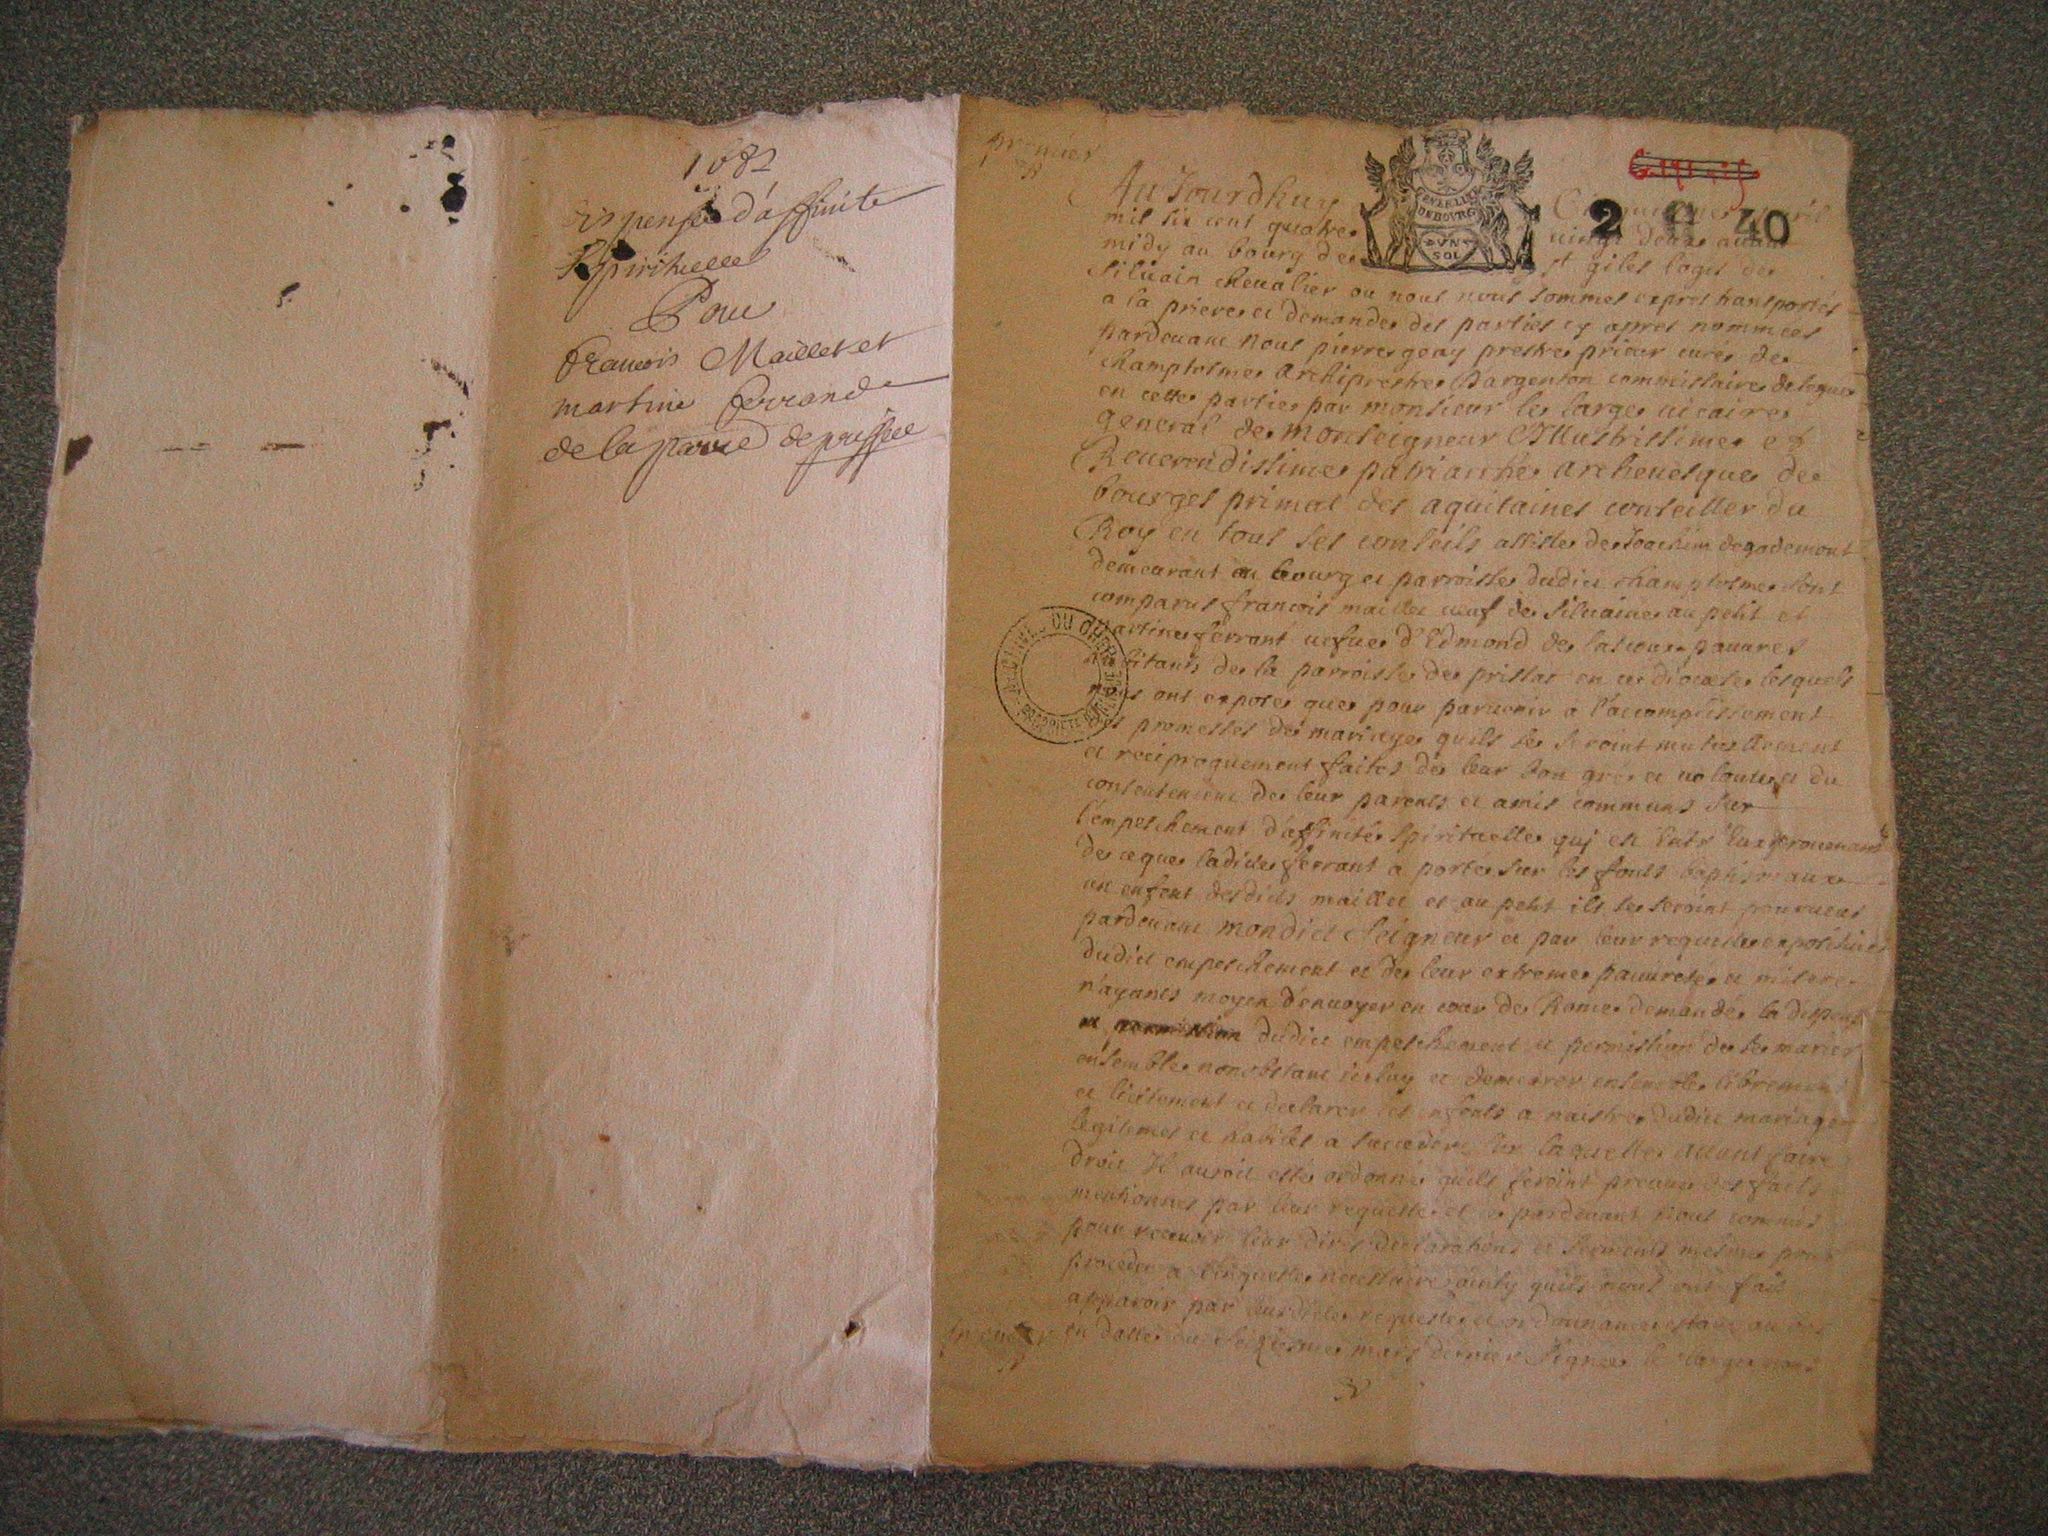 1682
dispense d'affinite
Spirituelle
Pour
francois Maillet et
martine ferrande
de la parroisse de
premier
Aujourdhuy Cinquiesme Avril
mil six cent quatre vingt deux avant
midy au bourg de St giles logis de
silvain chevalier ou nous nous sommes expres transportés
a la priere et demande des parties cy apres nommees
pardevant nous pierre geay prestre prieur curé de
champtosme Archiprestre dargenton commissaire
en cette partie par monsieur le large vicaire
general de Monseigneur Illustrissime et
Reverendissime patriarche archevesque de
bourges primat des aquitaines conseiller du
Roy en tout ses conseils assisté de Joachim degademont
demeurant au bourg et parroisse dudict champtosme sont
comparus francois maillet veuf de silvaine au petit et
martine ferrant vefve d'Edmond de pauvres
habitants de la parroisse de prissac en ce diocese lesquels
nous ont exposé que pour parvenir a l'accomplissement
des promesses de mariage quils se seroint mutuellement
et reciproquement faites de leur bon gré et volonté et du
consentement de leur parents et amis communs sur
l'empeschement d'affinité spirituelle qui est entr'eux provenant
de ce que ladicte ferrant a porté sur les fonts baptismaux
un enfent desdicts maillet et au petit ils se seroint pourveus
pardevant mondict seigneur et par leur requeste
dudict empeschement et de leur extreme pauvreté et misere
n'ayants moyen d'envoyer en cour de Rome demandé la dispense
dudict empeschement et permission de se marier
ensemble nonobstant iceluy et demeurer ensemble librement
et licitement et declarer les enfents a naistre dudict mariage
legitimes et habiles a succeder sur laquelle avant faire
droit Il auroit esté ordonné quils feroint preuve des faits
mentionnés par leur requeste et ce pardevant nous commis
pour recevoir leur dires declarations et serments mesme pour
proceder a l'enqueste necessaire ainsy quils nous ont fait
apparoir par leurdicte requeste et ordonnance estant au bas
en datte du seiziesme mars dernier signé le large nous
GN DE LA
DE BOURG
D'VN
SOL
2 G 40
ARCHIVES DU CHER
PROPRIÉTÉ PUBLIQUE